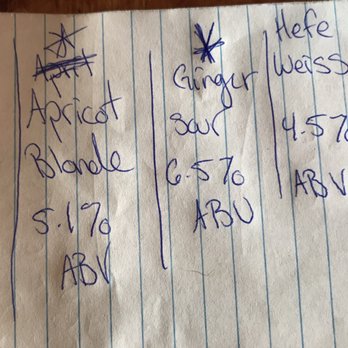 Apricot
Blonde
5.1%
ABV
Ginger
Sour
6.5%
ABV
Hefe
Weiss
4.5%
ABV